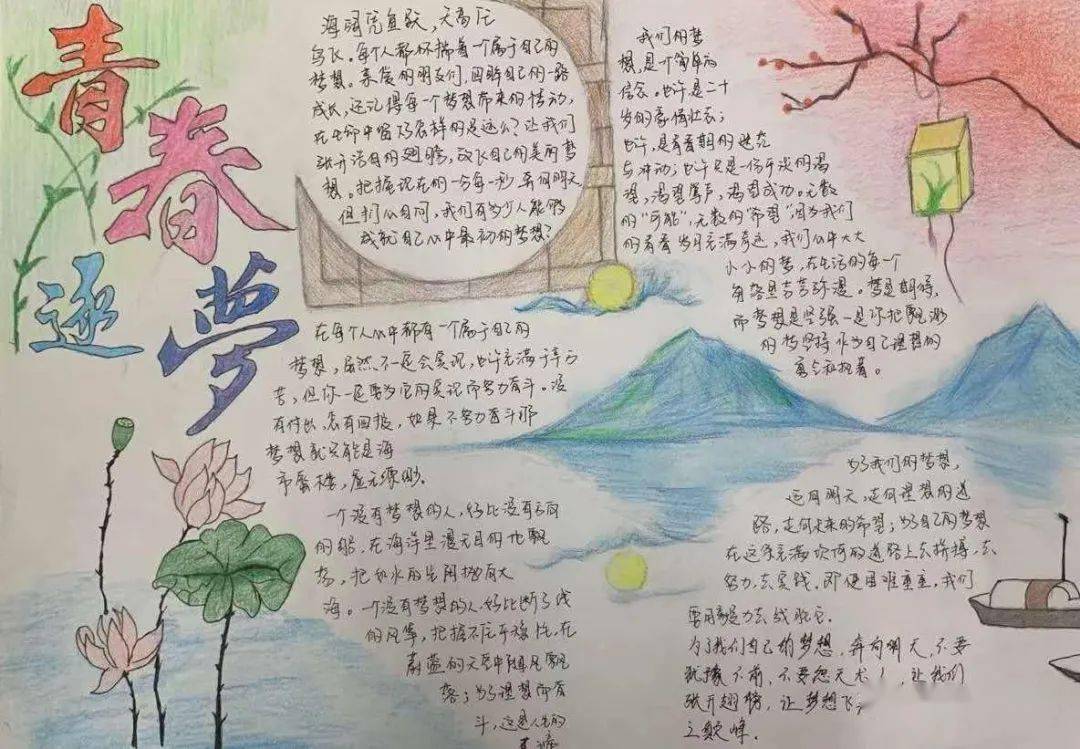 青春逐夢
海阔凭鱼跃，天高任
鸟飞。每个人都怀揣着一个属于自己的
梦想。亲爱的朋友们，回眸自己的一路
成长，还记得每一个梦想带来的悸动，
在生命中留下怎样的足迹么？让我们
张开洁白的翅膀，放飞自己的美丽梦
想。把握现在的一分每一秒，奔向明天。
但扪心自问，我们有多少人能够
成就自己心中最初的梦想？
我们的梦
想，是一个简单的
信念。也许是二十
岁的豪情壮志；
也许，是青春期的迷茫
与冲动；也许只是一份平淡的渴
望，渴望掌声，渴望成功。无数
的“可能”，无数的“希望”因为我们
的青春岁月充满奇迹，我们心中大大
小小的梦，在生活的每一个
角落里吉芳弥漫。梦是期待，
而梦想是坚强—是你把飘渺
的梦坚持作为自己理想的
勇气和执着。
在每个人心中都有一个属于自己的
梦想，虽然不一定会实现，也许充满了辛
苦，但你一定要为它的实现而努力奋斗。没
有付出，怎有回报，如果不努力奋斗那
梦想就只能是海
市蜃楼，虚无缥缈。
一个没有梦想的人，好比没有
的船，在海洋里漫无目的地飘
荡，把如水的生
海。一个没有梦想的人，好比断了线
的风筝，把握不住平稳
蔚蓝的天空中随风飘
落；为了理想而奋
斗，这是人生的
为了我们的梦想，
迈向明天，走向理想的道
路，走向未来的希望；为自己的梦想
在这条充满坎坷的道路上去拼搏，去
努力，去实践。即使困难重重，我们
要用毅力去战胜它。
为了我们自己的梦想，奔向明天，不要
犹豫不前，不要怨天尤人，让我们
张开翅膀，让梦想飞
之巅峰。